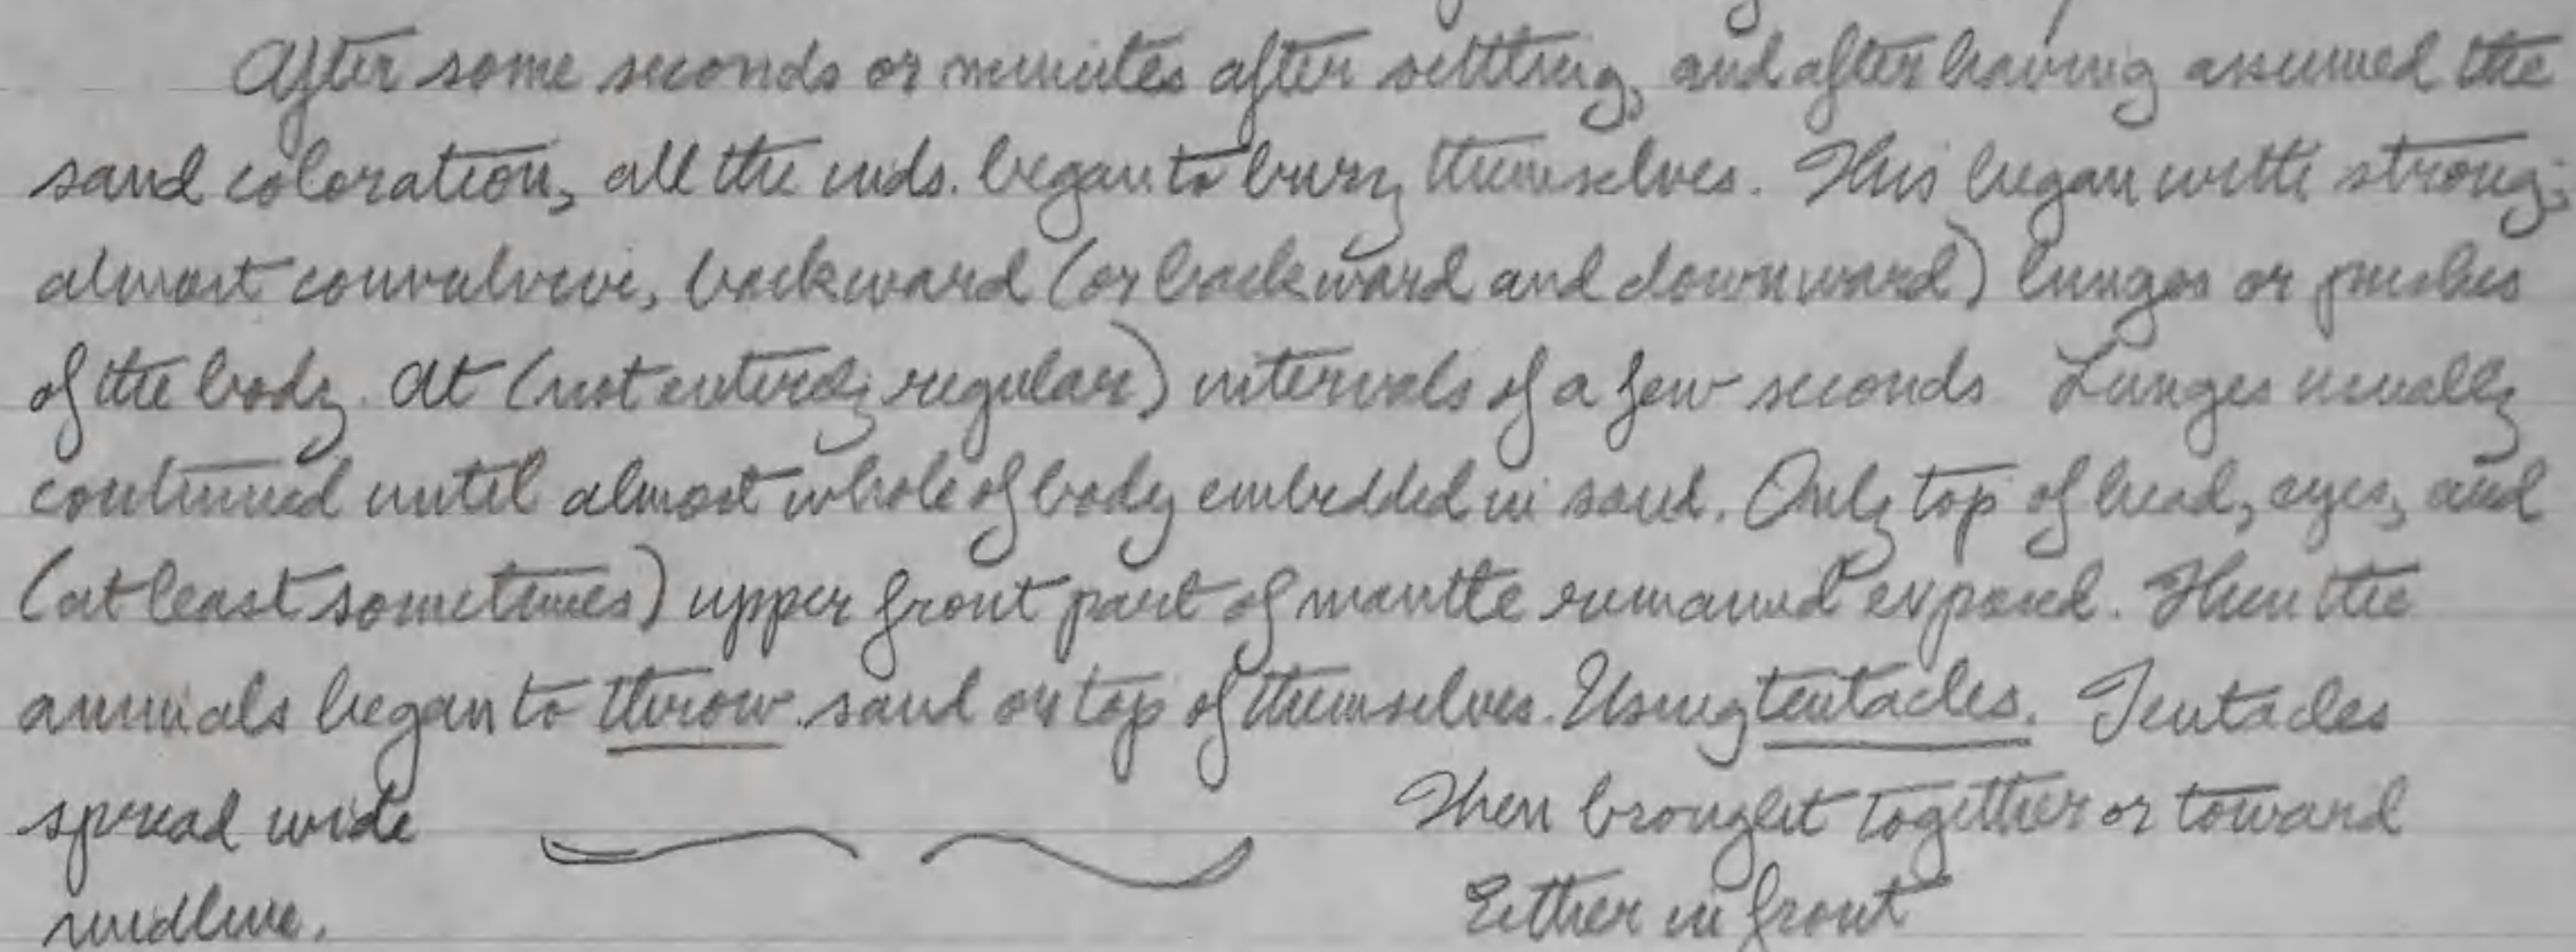 After some seconds or minutes after settling, and after having assumed the
sand coloration, all the inds. began to bury themselves. This began with strong,
almost convulsive, backward (or backward and downward) lunges or pushes
of the body. At (not entirely regular) intervals of a few seconds. Lunges usually
continued until almost whole of body embedded in sand. Only top of head, eyes, and
(at least sometimes) upper front part of mantle remained exposed. Then the
animals began to throw sand on top of themselves. Using tentacles. Tentacles
spread wide Then brought together or toward
midline. Either in front